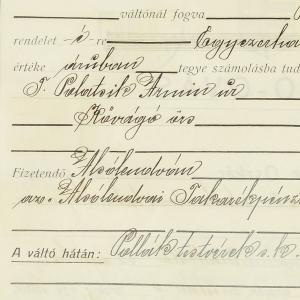 váltónál fogva
rendelet -é re Egyezerha
értéke áruban tegye számolásba tud
T. Palatsik Ármin úr
Kővágó örs
Fizetendő Alsólendván
az Alsólendvai Takarékpénz
A váltó hátán: Pollák testvérek s. k.